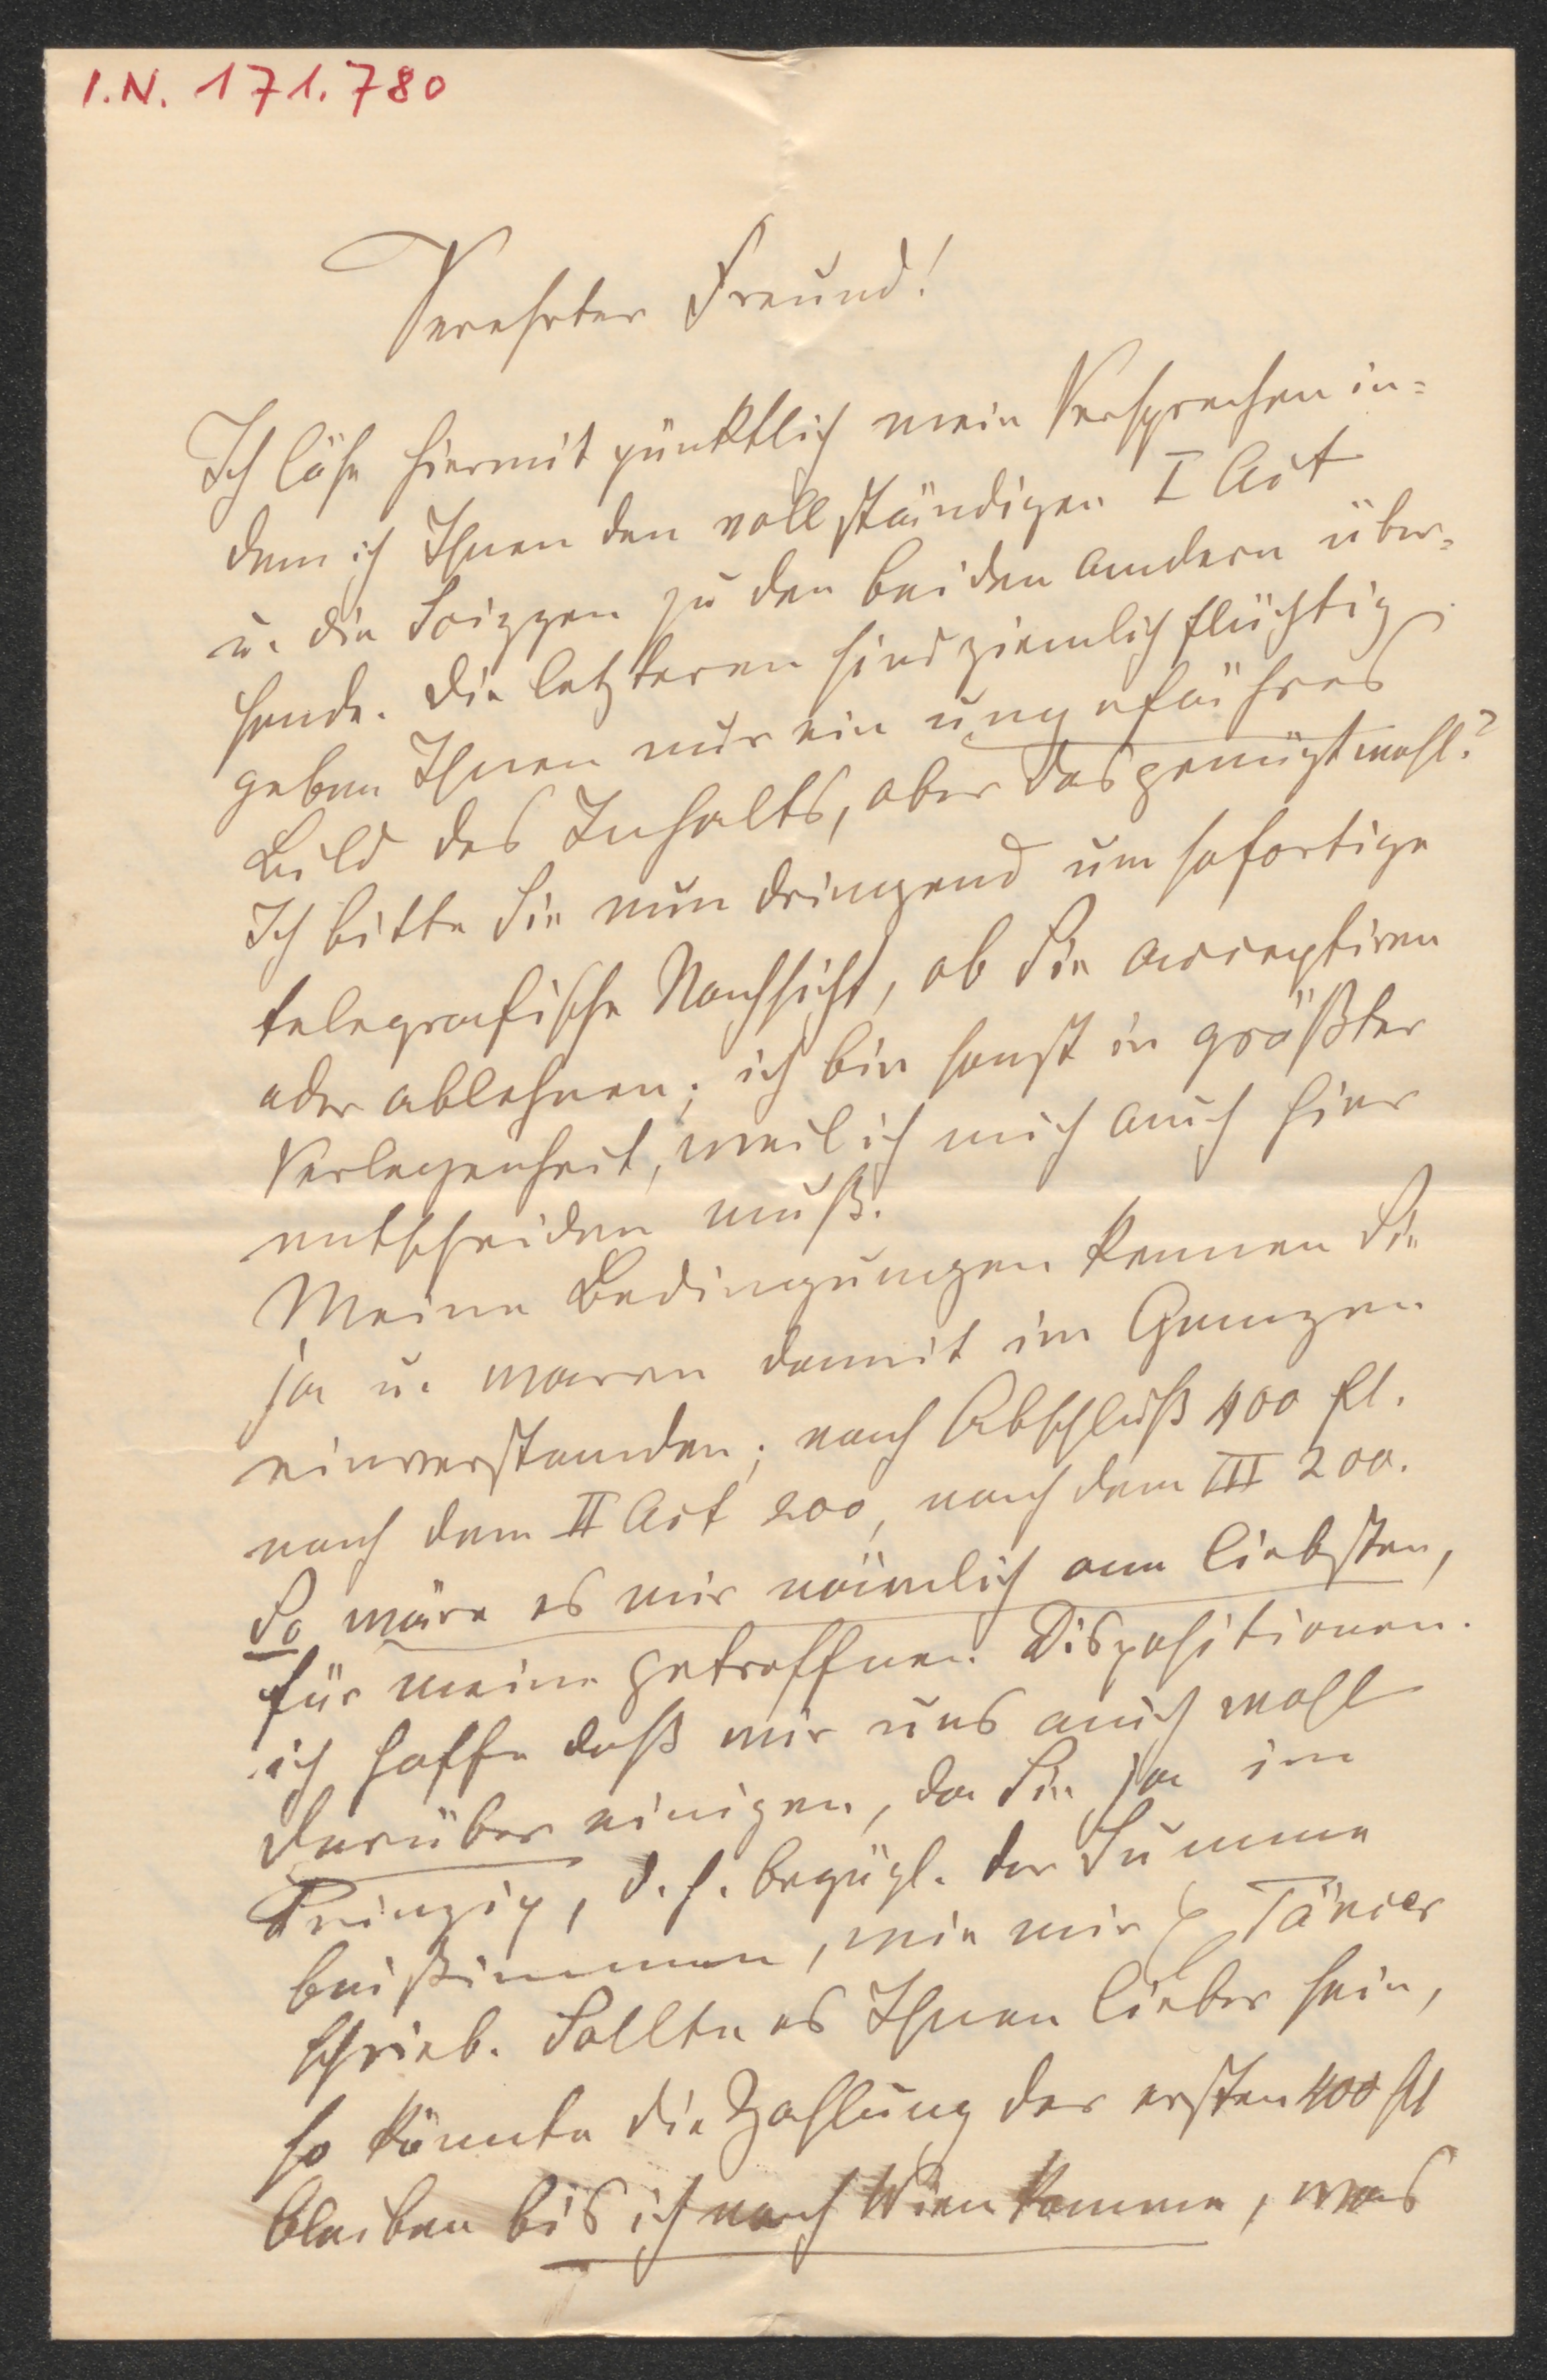 I.N. 171.780
Verehrter Freund!
Ich löse hiermit pünktlich mein Versprechen in-
dem ich Ihnen den vollständigen I Act
u. die Scizzen zu den beiden andern über-
sende. Die letzteren sind ziemlich flüchtig
geben Ihnen nur ein ungefähres
Bild des Inhalts, aber das genügt wohl?
Ich bitte Sie nun dringend um sofortige
telegrafische Nachsicht, ob Sie acceptiren
oder ablehnen; ich bin sonst in größter
Verlegenheit, weil ich mich auch hier
entscheiden muß.
Meine Bedingungen kennen Sie
ja u. waren damit im Ganzen
einverstanden; nach Abschluß 400 fl.
nach dem II Act 200, nach dem III 200.
So wäre es mir nämlich am liebsten,
für meine getroffnen Dispositionen.
ich hoffe daß wir uns auch wohl
darüber einigen, da Sie ja im
Prinzip, d. h. bezügl. der Summe
beistimmen, wie mir
schrieb. Sollte es Ihnen lieber sein,
so könnte die Zahlung der ersten 400 fl
bleiben bis ich nach Wien komme, was